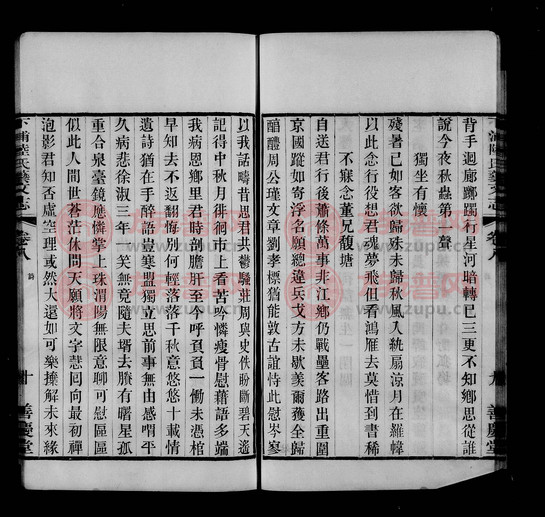 背手迴廊躑躅行星河暗轉已三更不知鄉思從誰
說今夜秋蟲第一聲
獨坐有懷
殘暑已如客欲歸殊未歸秋風入紈扇涼月在羅幃
以此念行役思君魂夢飛但看鴻雁去莫惜到書稀
不寐念董兄馥塘
自送君行後瀟條萬事非江鄉仍戰壘客路出重圍
京國蹤如寄浮名願總違兵戈方未歇羨爾獲全歸
醕醴周公瑾文章劉孝標猶能敦古誼恃此慰岑寥
以我話疇昔思君共鬱騷莊周與史佚盼斷碧天遙
記得中秋月徘徊市上看苦吟憐瘦骨慰藉語多端
我病恩鄉里君時剖膽肝至今呼負負一慟未憑棺
早知去不返翻悔別何輕落落千秋意悠悠十載情
遺詩猶在手醉語豈寒盟獨立思前事無由感喟平
久病悲徐淑三年一笑無竟隨夫壻去賸有曙星孤
重合泉臺鏡應憐掌上珠渭陽無限意聊可慰區區
似此人間世蒼茫休問天願將文字慧囘向最初禪
泡影君知否虛空理或然大還如可樂擡解未來緣
卷八
詩
十
善慶堂
卷八
九
善慶堂